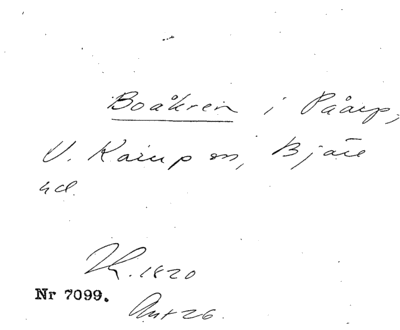 Boåkren i Påarp,
V. Karup sn, Bjäre
hd.
Th. 1820
Nr 7099.
Ant 26.